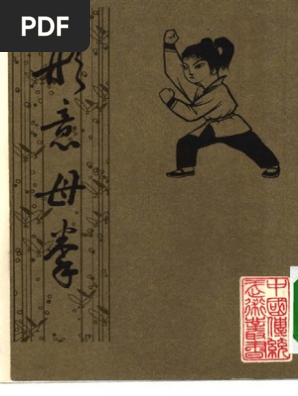 PDF
形意母拳
中國傳統
武術叢書